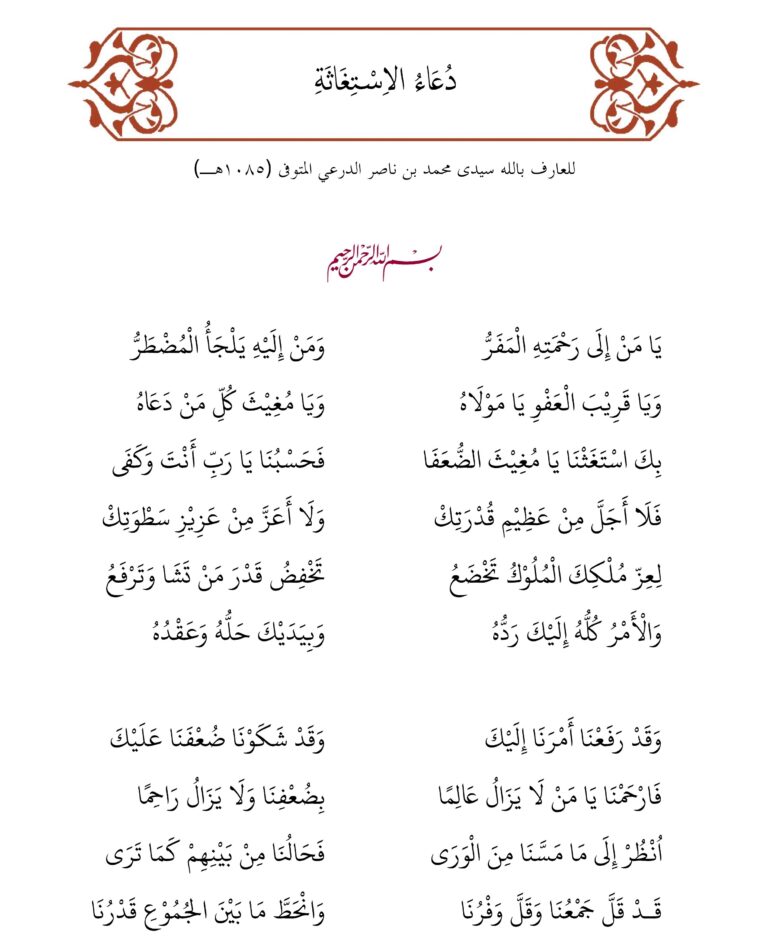 دُعَاءُ الاِسْتِغَاثَةِ
للعارف بالله سيدى محمد بن ناصر الدرعي المتوفى (١٠٨٥هــ)
بسم الله الرحمن الرحيم
يَا مَنْ إِلَى رَحْمَتِهِ الْمَفَرُّ وَمَنْ إِلَيْهِ يَلْجَأُ الْمُضْطَرُّ
وَيَا قَرِيْبَ الْعَفْوِ يَا مَوْلَاهُ وَيَا مُغِيْثَ كُلِّ مَنْ دَعَاهُ
بِكَ اسْتَغَثْنَا يَا مُغِيْثَ الضُّعَفَا فَحَسْبُنَا يَا رَبِّ أَنْتَ وَكَفَى
فَلَا أَجَلَّ مِنْ عَظِيْمِ قُدْرَتِكْ وَلَا أَعَزَّ مِنْ عَزِيْزِ سَطْوَتِكْ
لِعِزِّ مُلْكِكَ الْمُلُوْكُ تَخْضَعُ تَخْفِضُ قَدْرَ مَنْ تَشَا وَتَرْفَعُ
وَالْأَمْرُ كُلُّهُ إِلَيْكَ رَدُّهُ وَبِيَدَيْكَ حَلُّهُ وَعَقْدُهُ
وَقَدْ رَفَعْنَا أَمْرَنَا إِلَيْكَ وَقَدْ شَكَوْنَا ضُعْفَنَا عَلَيْكَ
فَارْحَمْنَا يَا مَنْ لَا يَزَالُ عَالِمًا بِضُعْفِنَا وَلَا يَزَالُ رَاحِمًا
اُنْظُرْ إِلَى مَا مَسَّنَا مِنَ الْوَرَى فَحَالُنَا مِنْ بَيْنِهِمْ كَمَا تَرَى
قَــدْ قَلَّ جَمْعُنَا وَقَلَّ وَفْرُنَا وَانْحَطَّ مَا بَيْنَ الْجُمُوْعِ قَدْرُنَا